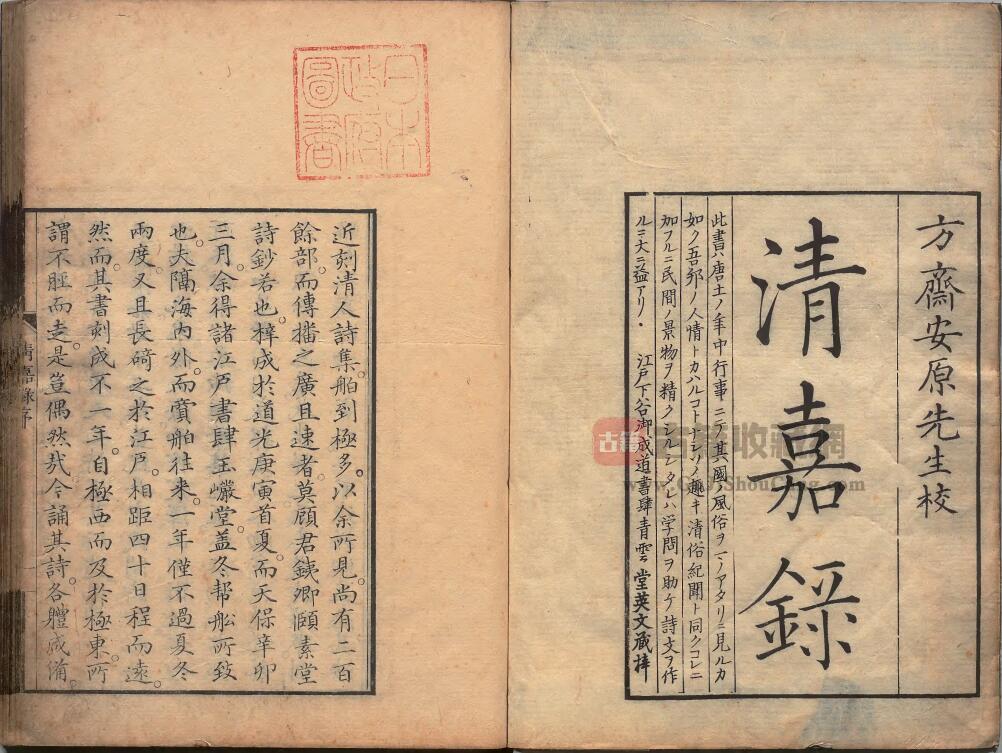 方齋安原先生校
清嘉錄
此書ハ唐土ノ年中行事ニテ其國ノ風俗ヲマノアタリニ見ルカ
如ク吾邦ノ人情トカハルコトナシソノ趣キ清俗紀聞ト同クコレニ
加フルニ民間ノ景物ヲ精クシルシタレハ学問ヲ助ケ詩文ヲ作
ルニ大ニ益アリ
江戸下谷御成道書肆青雲堂英文蔵梓
日本政府圖書
近刻清人詩集舶到極多以余所見尚有二百
餘部而傳播之廣且速者莫顧君鉄卿頤素堂
詩鈔若也梓成於道光庚寅首夏而天保辛卯
三月余得諸江戸書肆玉巖堂盖冬幇船所致
也夫隔海内外而賣舶往来一年僅不過夏冬
兩度又且長碕之於江戸相距四十日程而遠
然而其書刻成不一年自極西而及於極東所
謂不脛而走是豈偶然哉今誦其詩各體咸備
清嘉錄序
古籍收藏網
ShouCang.com